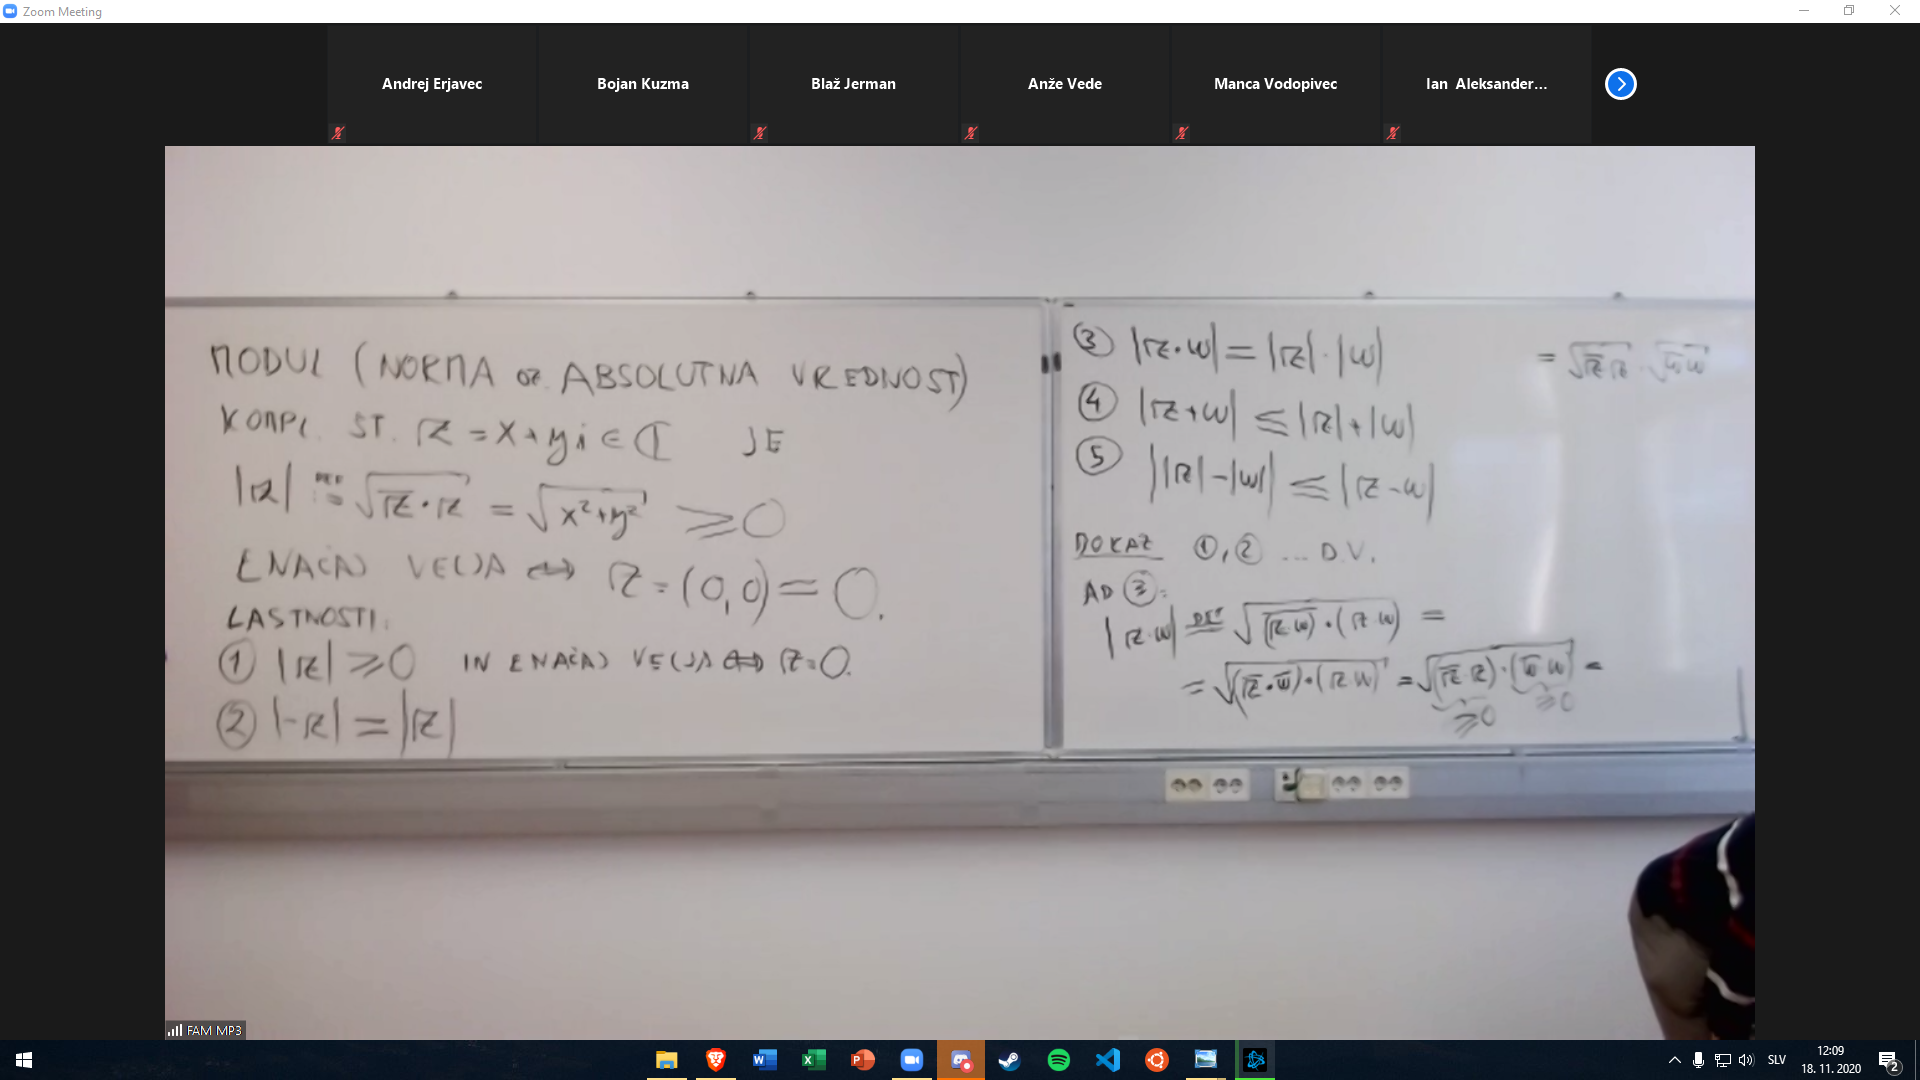 Zoom Meeting
Andrej Erjavec
Bojan Kuzma
Blaž Jerman
Anže Vede
Manca Vodopivec
Ian Aleksander...
MODUL (NORMA OZ. ABSOLUTNA VREDNOST)
KOMPL. ŠT. z = x + yi ∈ ℂ JE
|z| DEF := √(z̄·z) = √(x²+y²) ≥ 0
ENAČAJ VELJA ⇔ z = (0,0) = 0.
LASTNOSTI:
① |z| ≥ 0 IN ENAČAJ VELJA ⇔ z = 0.
② |-z| = |z|
③ |z·w| = |z|·|w|
④ |z+w| ≤ |z|+|w|
⑤ ||z|-|w|| ≤ |z-w|
DOKAZ ①,② ... D.V.
AD ③:
|z·w| DEF = √((z·w)‾·(z·w)) =
= √((z̄·w̄)·(z·w)) = √((z̄·z)·(w̄·w)) =
≥0 ≥0
= √(z̄·z) · √(w̄·w)
FAM MP3
SLV
12:09
18. 11. 2020
2